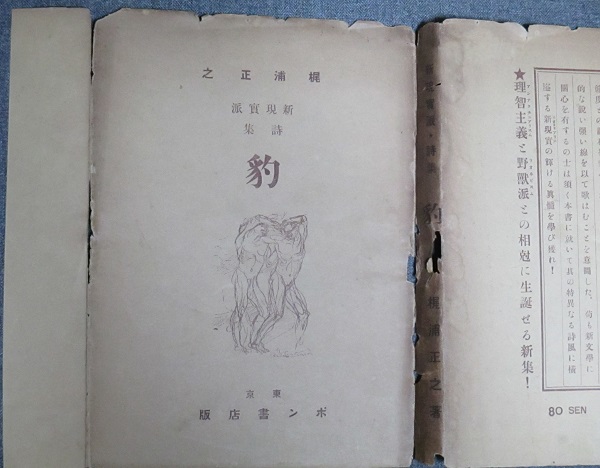 梶浦正之
新現實派
詩集
豹
東京
ボン書店版
詩集
豹
梶浦正之著
的な鋭い細い線を以て歌はむことを意圖した。苟も新文學に
關心を有するの士は須く本書に就いて其の特異なる詩風に横
溢する新現實の輝ける眞髄を學び獲れ！
★理智主義と野獸派との相剋に生誕せる新集！
80 SEN